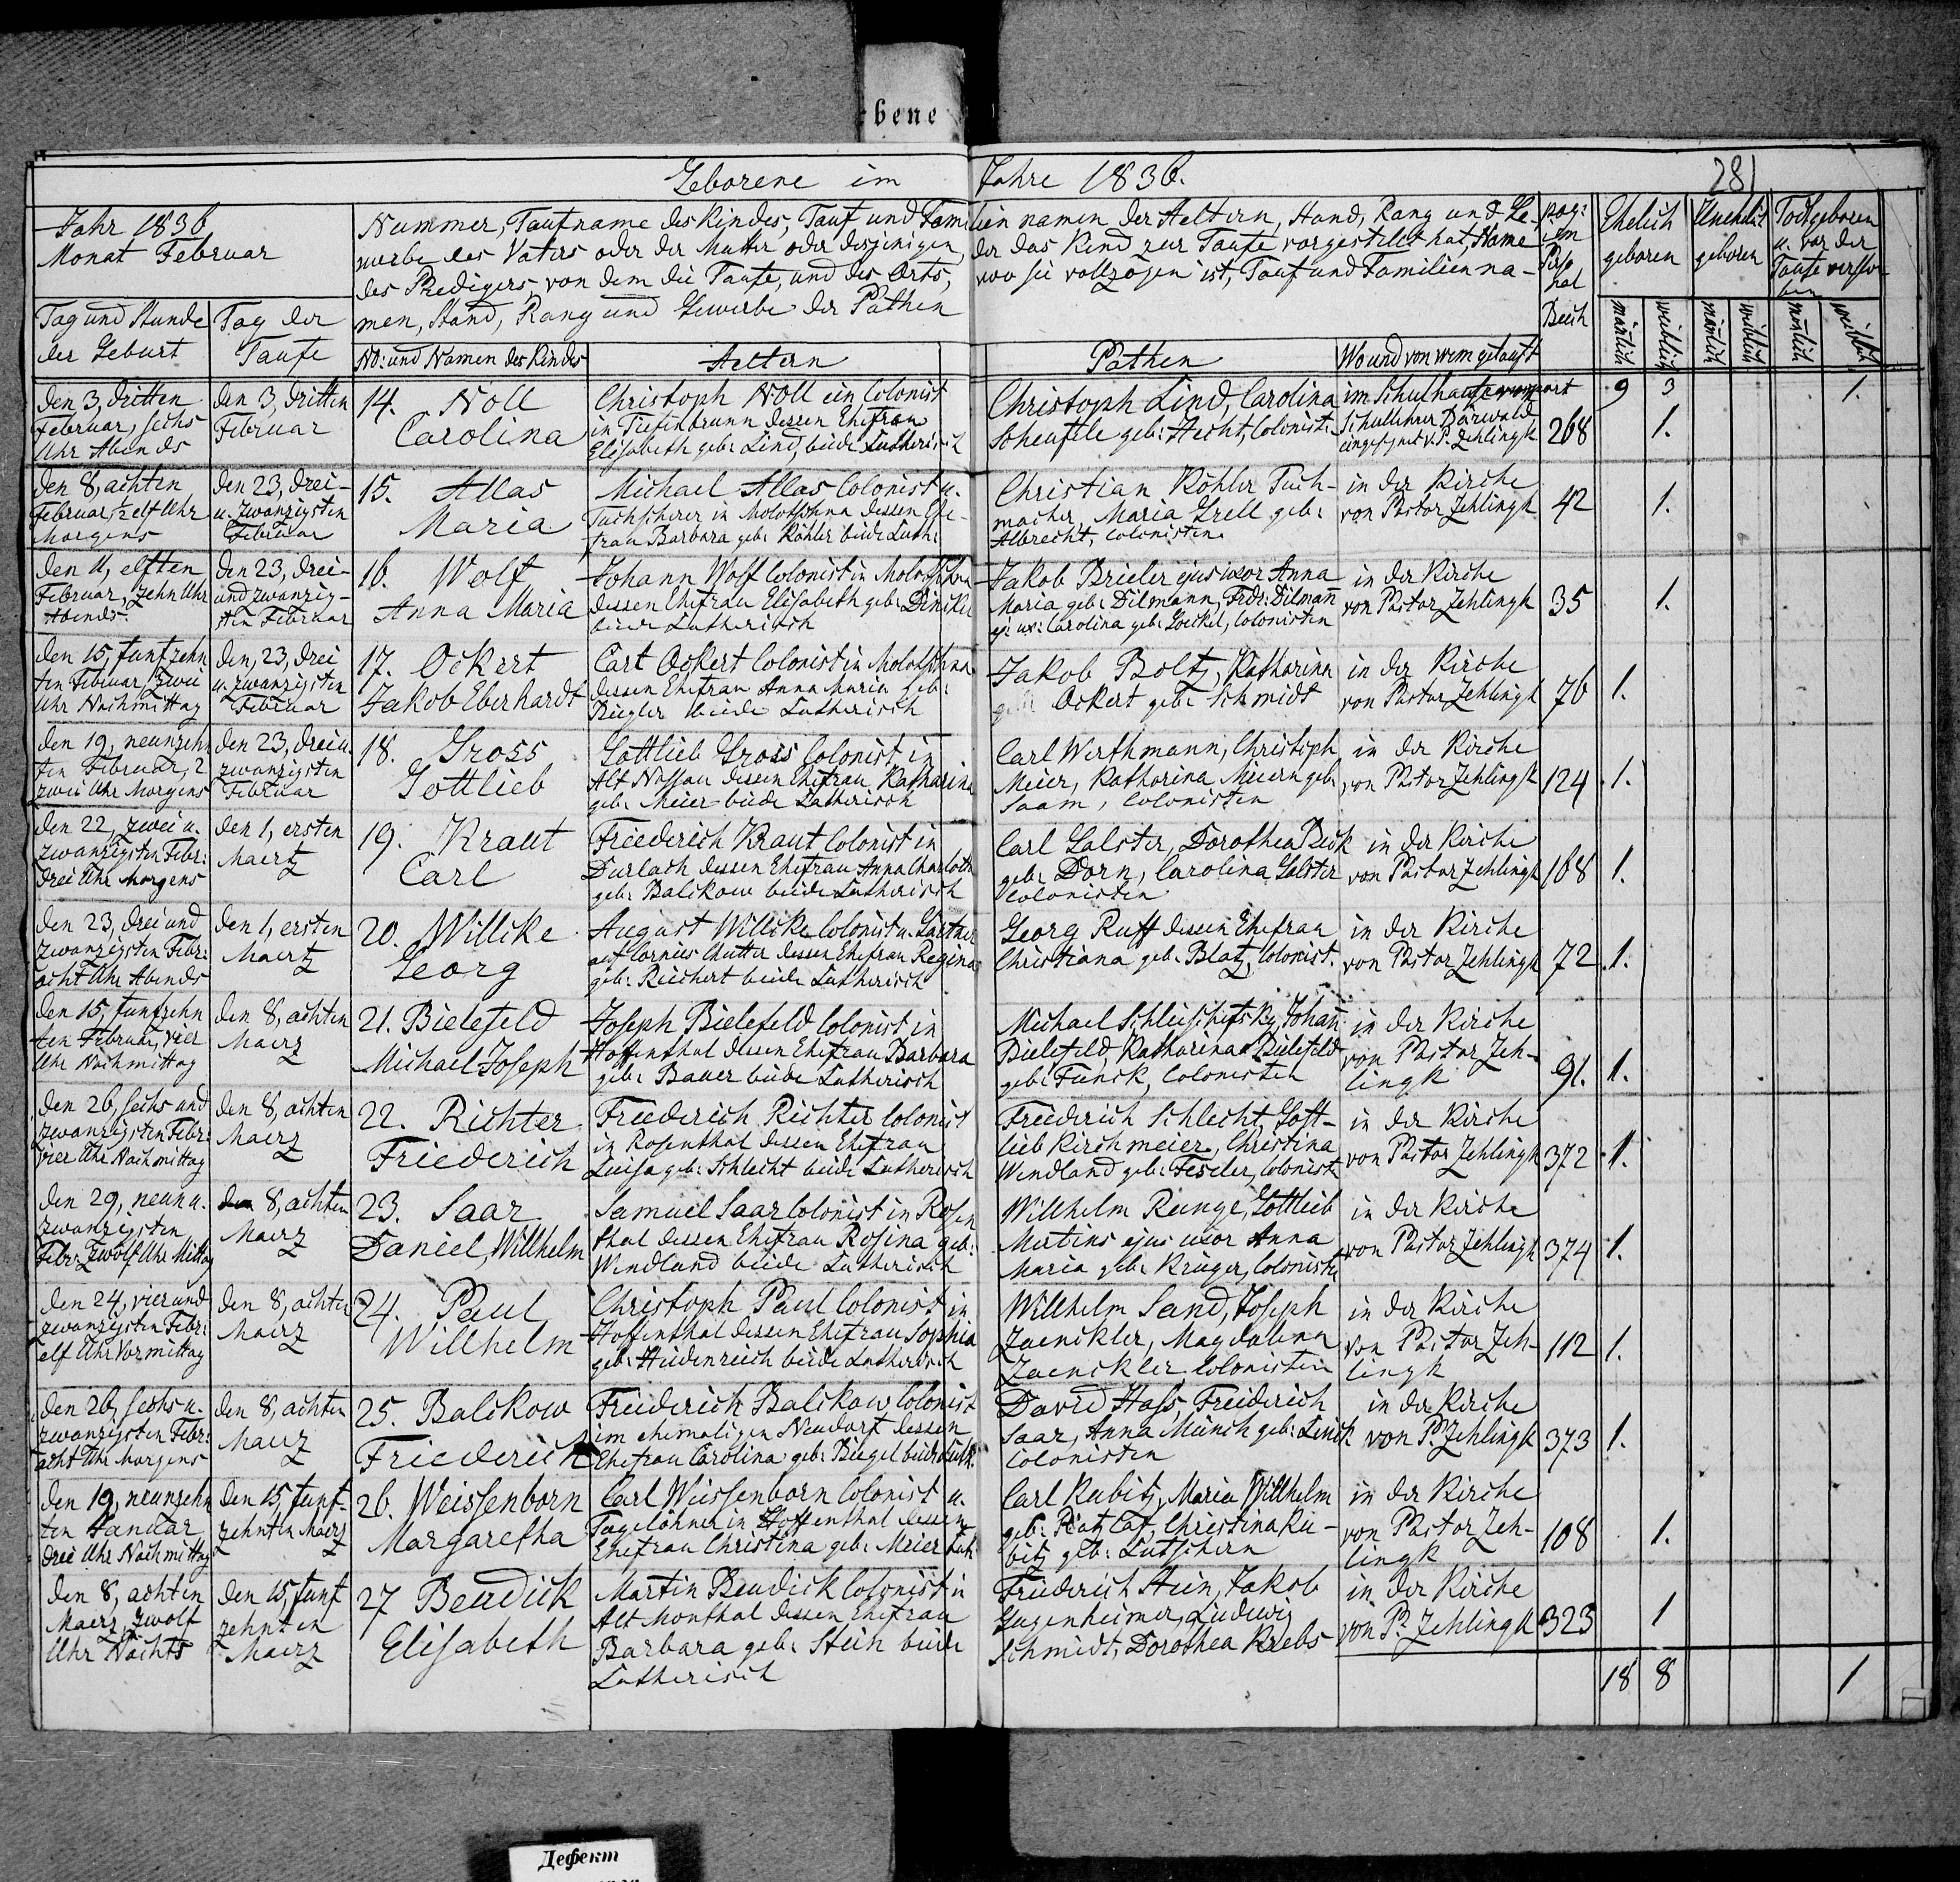 bene
Geborene im Jahre 1836.
281
Jahr 1836
Monat Februar
Nummer, Taufname des Kindes, Tauf und Familien namen der Aeltern, Stand, Rang und Ge-
werbe des Vaters oder der Mutter oder desjenigen, der das Kind zur Taufe vorgestellt hat, Name
des Predigers, von dem die Taufe, und des Orts, wo sie vollzogen ist, Tauf und Familienna-
men, Stand, Rang und Gewerbe der Pathen
pag:
im
Perso
nal
Buch
Ehelich
geboren
Unehelich
geboren
Todtgeboren
u. vor der
Taufe verstor
ben
Tag und Stunde
der Geburt
Tag der
Taufe
No: und Namen des Kindes
Aeltern
Pathen
Wo und von wem getauft
mänlich
weiblich
mänlich
weiblich
mänlich
weiblich
9 3 1.
den 3, dritten
Februar, sechs
Uhr Abends
den 3, dritten
Februar
14. Noll
Carolina
Christoph Noll ein Colonist
in Tiefenbrunn dessen Ehefrau
Elisabeth geb: Lind, beide Lutherisch
Christoph Lind, Carolina
Scheufele geb: Hecht, Colonist:
im Schulhause vom
Schullehrer Bärwald
eingesegnet v. P. Zehlingk
268
1.
den 8, achten
Februar, ½ elf Uhr
Morgens
den 23, drei-
u. zwanzigsten
Februar
15. Allas
Maria
Michael Allas Colonist u.
Tuchscherer in Molotschna dessen Ehe-
frau Barbara geb: Köhler beide Luth:
Christian Köhler Tuch-
macher, Maria Grell geb:
Albrecht, Colonisten
in der Kirche
von Pastor Zehlingk
42
1.
den 11, elften
Februar, zehn Uhr
Abends.
den 23, drei-
und zwanzig-
sten Februar
16. Wolf
Anna Maria
Johann Wolf Colonist in Molotschna
dessen Ehefrau Elisabeth geb: Dinckel
beide Lutherisch
Jakob Brieler ejus uxor Anna
Maria geb: Dilmann, Frdr: Dilmañ
ej: ux: Carolina geb: Goeckel, Colonisten
in der Kirche
von Pastor Zehlingk
35
1.
den 15, funfzehn
ten Februar, zwei
Uhr Nachmittag
den, 23, drei
u. zwanzigsten
Februar
17. Ockert
Jakob Eberhardt
Carl Ockert Colonist in Molotschna
dessen Ehefrau Anna Maria geb:
Ziegler beide Lutherisch
Jakob Boltz, Katharina
Ockert geb: Schmidt
in der Kirche
von Pastor Zehlingk
76
1.
den 19, neunzehn
ten Februar, 2
zwei Uhr Morgens
den 23, drei u.
zwanzigsten
Februar
18. Gross
Gottlieb
Gottlieb Gross Colonist in
Alt Nassau dessen Ehefrau Katharina
geb: Meier beide Lutherisch
Carl Werthmann, Christoph
Meier, Katharina Meiern geb:
Saam, Colonisten
in der Kirche
von Pastor Zehlingk
124
1.
den 22, zwei u.
zwanzigsten Febr:
drei Uhr Morgens
den 1, ersten
Maertz
19. Kraut
Carl
Friederich Kraut Colonist in
Durlach dessen Ehefrau Anna Charlotte
geb: Balikow beide Lutherisch
Carl Galster, Dorothea Beck
geb: Dorn, Carolina Galster
Colonisten
in der Kirche
von Pastor Zehlingk
168
1.
den 23, drei und
zwanzigsten Febr:
acht Uhr Abends
den 1, ersten
Maertz
20. Willike
Georg
August Willike Colonist u. Gärtner
auf Cornies Chutter dessen Ehefrau Regina
geb: Reichert beide Lutherisch
Georg Ruff dessen Ehefrau
Christiana geb: Blatz, Colonist.
in der Kirche
von Pastor Zehlingk
72
1.
den 15, funfzehn
ten Februar, vier
Uhr Nachmittag
den 8, achten
Maerz
21. Bielefeld
Michael Joseph
Joseph Bielefeld Colonist in
Hoffenthal dessen Ehefrau Barbara
geb: Bauer beide Lutherisch
Michael Schleischefsky, Johañ
Bielefeld, Katharina Bielefeld
geb: Funck, Colonisten
in der Kirche
von Pastor Zeh-
lingk
91.
1.
den 26, sechs und
zwanzigsten Febr:
vier Uhr Nachmittag
den 8, achten
Maerz
22. Richter
Friederich
Friederich Richter Colonist
in Rosenthal dessen Ehefrau
Luisa geb: Schlecht beide Lutherisch
Friederich Schlecht, Gott-
lieb Kirchmeier, Christina
Windland geb: Feseler, Colonist
in der Kirche
von Pastor Zehlingk
372
1.
den 29, neun u.
zwanzigsten
Febr: zwölf Uhr Mittag
den 8, achten
Maerz
23. Saar
Daniel, Willhelm
Samuel Saar Colonist in Rosen
thal dessen Ehefrau Rosina geb:
Windland beide Lutherisch
Willhelm Runge, Gottlieb
Mertins ejus uxor Anna
Maria geb: Krüger, Coloniste
in der Kirche
von Pastor Zehlingk
374
1.
den 24, vier und
zwanzigsten Febr:
elf Uhr Vormittag
den 8, achten
Maerz
24. Paul
Willhelm
Christoph Paul Colonist in
Hoffenthal dessen Ehefrau Sophia
geb: Heidenreich beide Lutherisch
Willhelm Sand, Joseph
Zaenckler, Magdalena
Zaenckler Colonisten
in der Kirche
von Pastor Zeh-
lingk
112
1.
den 26, sechs u.
zwanzigsten Febr:
acht Uhr Morgens
den 8, achten
Maerz
25. Balikow
Friederich
Friederich Balikow Colonist
im ehemaligen Neudorf dessen
Ehefrau Carolina geb: Biegel beide Luth:
David Hass, Friederich
Saar, Anna Münch geb: Linck
Colonisten
in der Kirche
von P. Zehlingk
373
1.
den 19, neunzehn
ten Januar
drei Uhr Nachmittag
den 15, funf-
zehnten Maerz
26. Weissenborn
Margaretha
Carl Weissenborn Colonist u.
Tagelöhner in Hoffenthal dessen
Ehefrau Christina geb: Meier Luth
Carl Rubitz, Maria Willhelm
geb: Ratzlaf, Christina Ru-
bitz geb: Lutschern
in der Kirche
von Pastor Zeh-
lingk
108
1.
den 8, achten
Maerz, zwölf
Uhr Nachts
den 15, funf
zehnten
Maerz
27 Beudick
Elisabeth
Martin Beudick Colonist in
Alt Monthal dessen Ehefrau
Barbara geb: Stein beide
Lutherisch
Friederich Stein, Jakob
Gugenheimer, Ludewig
Schmidt, Dorothea Krebs
in der Kirche
von P. Zehlingk
323
1
18 8 1
Дефект